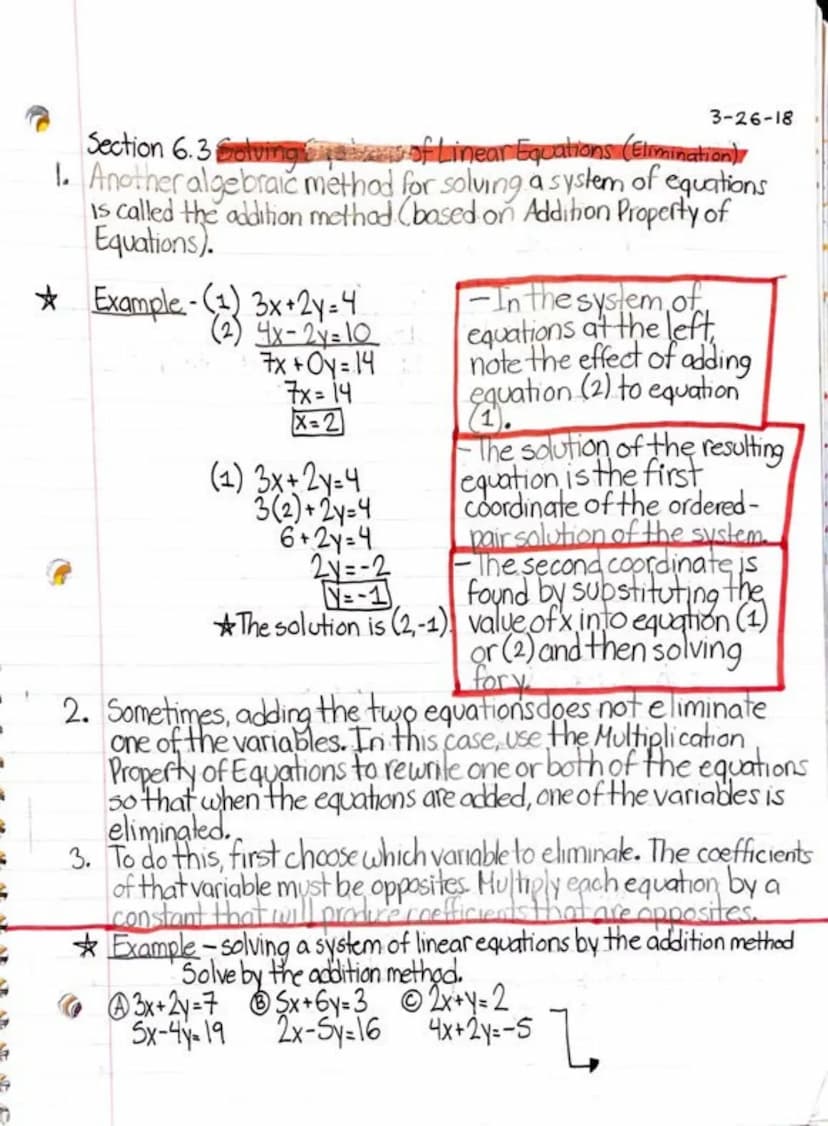 3-26-18
Section 6.3 Solving Systems of Linear Equations (Elimination)
1. Another algebraic method for solving a system of equations
is called the addition method (based on Addition Property of
Equations).
★ Example - (1) 3x+2y=4
(2) 4x-2y=10
7x+0y=14
7x=14
x=2
-In the system of
equations at the left,
note the effect of adding
equation (2) to equation
(1).
(1) 3x+2y=4
3(2)+2y=4
6+2y=4
2y=-2
y=-1
★The solution is (2,-1).
-The solution of the resulting
equation is the first
coordinate of the ordered-
pair solution of the system.
-The second coordinate is
found by substituting the
value of x into equation (1)
or (2) and then solving
for y.
2. Sometimes, adding the two equations does not eliminate
one of the variables. In this case, use the Multiplication
Property of Equations to rewrite one or both of the equations
so that when the equations are added, one of the variables is
eliminated.
3. To do this, first choose which variable to eliminate. The coefficients
of that variable must be opposites. Multiply each equation by a
constant that will produce coefficients that are opposites.
★ Example - solving a system of linear equations by the addition method
Solve by the addition method.
Ⓐ 3x+2y=7 Ⓑ 5x+6y=3 Ⓒ 2x+y=2
5x-4y=19 2x-5y=16 4x+2y=-5